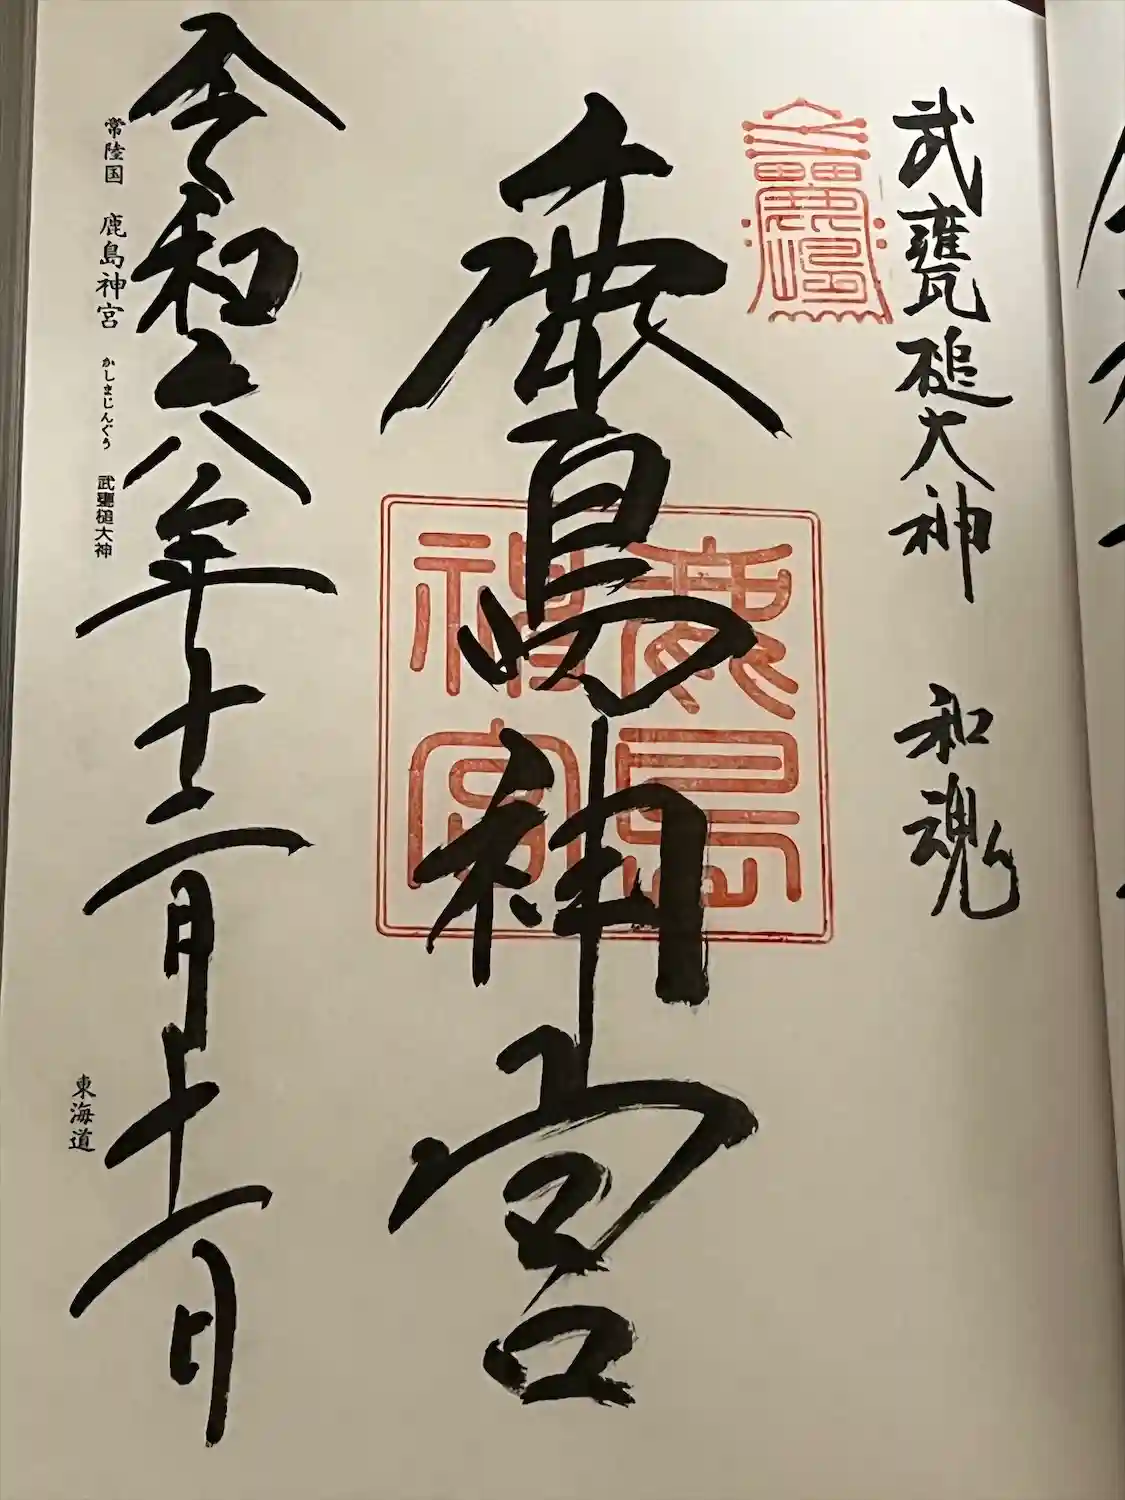 武甕槌大神　和魂
鹿島神宮
鹿島神宮
令和六年十二月十一日
常陸国　鹿島神宮　かしまじんぐう　武甕槌大神
東海道